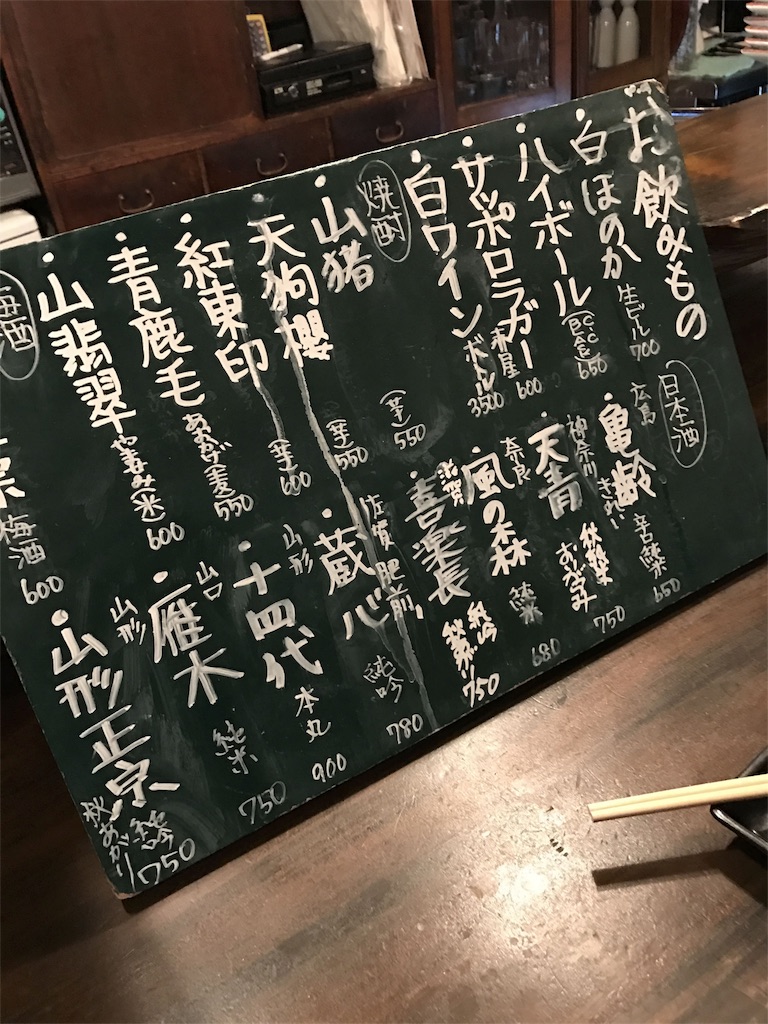 お飲みもの
白ほのか 生ビール 700
ハイボール (C.C. BEAM) 650
サッポロラガー 赤星 600
白ワイン ボトル 3500
焼酎
山猪 (芋) 550
天狗櫻 (芋) 550
紅東印 (芋) 600
青鹿毛 あおかげ(麦) 550
山翡翠 やませみ(米) 600
梅酒
梅酒 600
日本酒
広島 亀齢 きれい 辛口純米 650
神奈川 天青 秋純米 おりがみ 750
奈良 風の森 純米 680
滋賀 喜楽長 純吟 750
佐賀 肥前蔵心 純吟 780
山形 十四代 本丸 900
山口 雁木 純米 750
山形 山形正宗 純吟 秋あがり 750